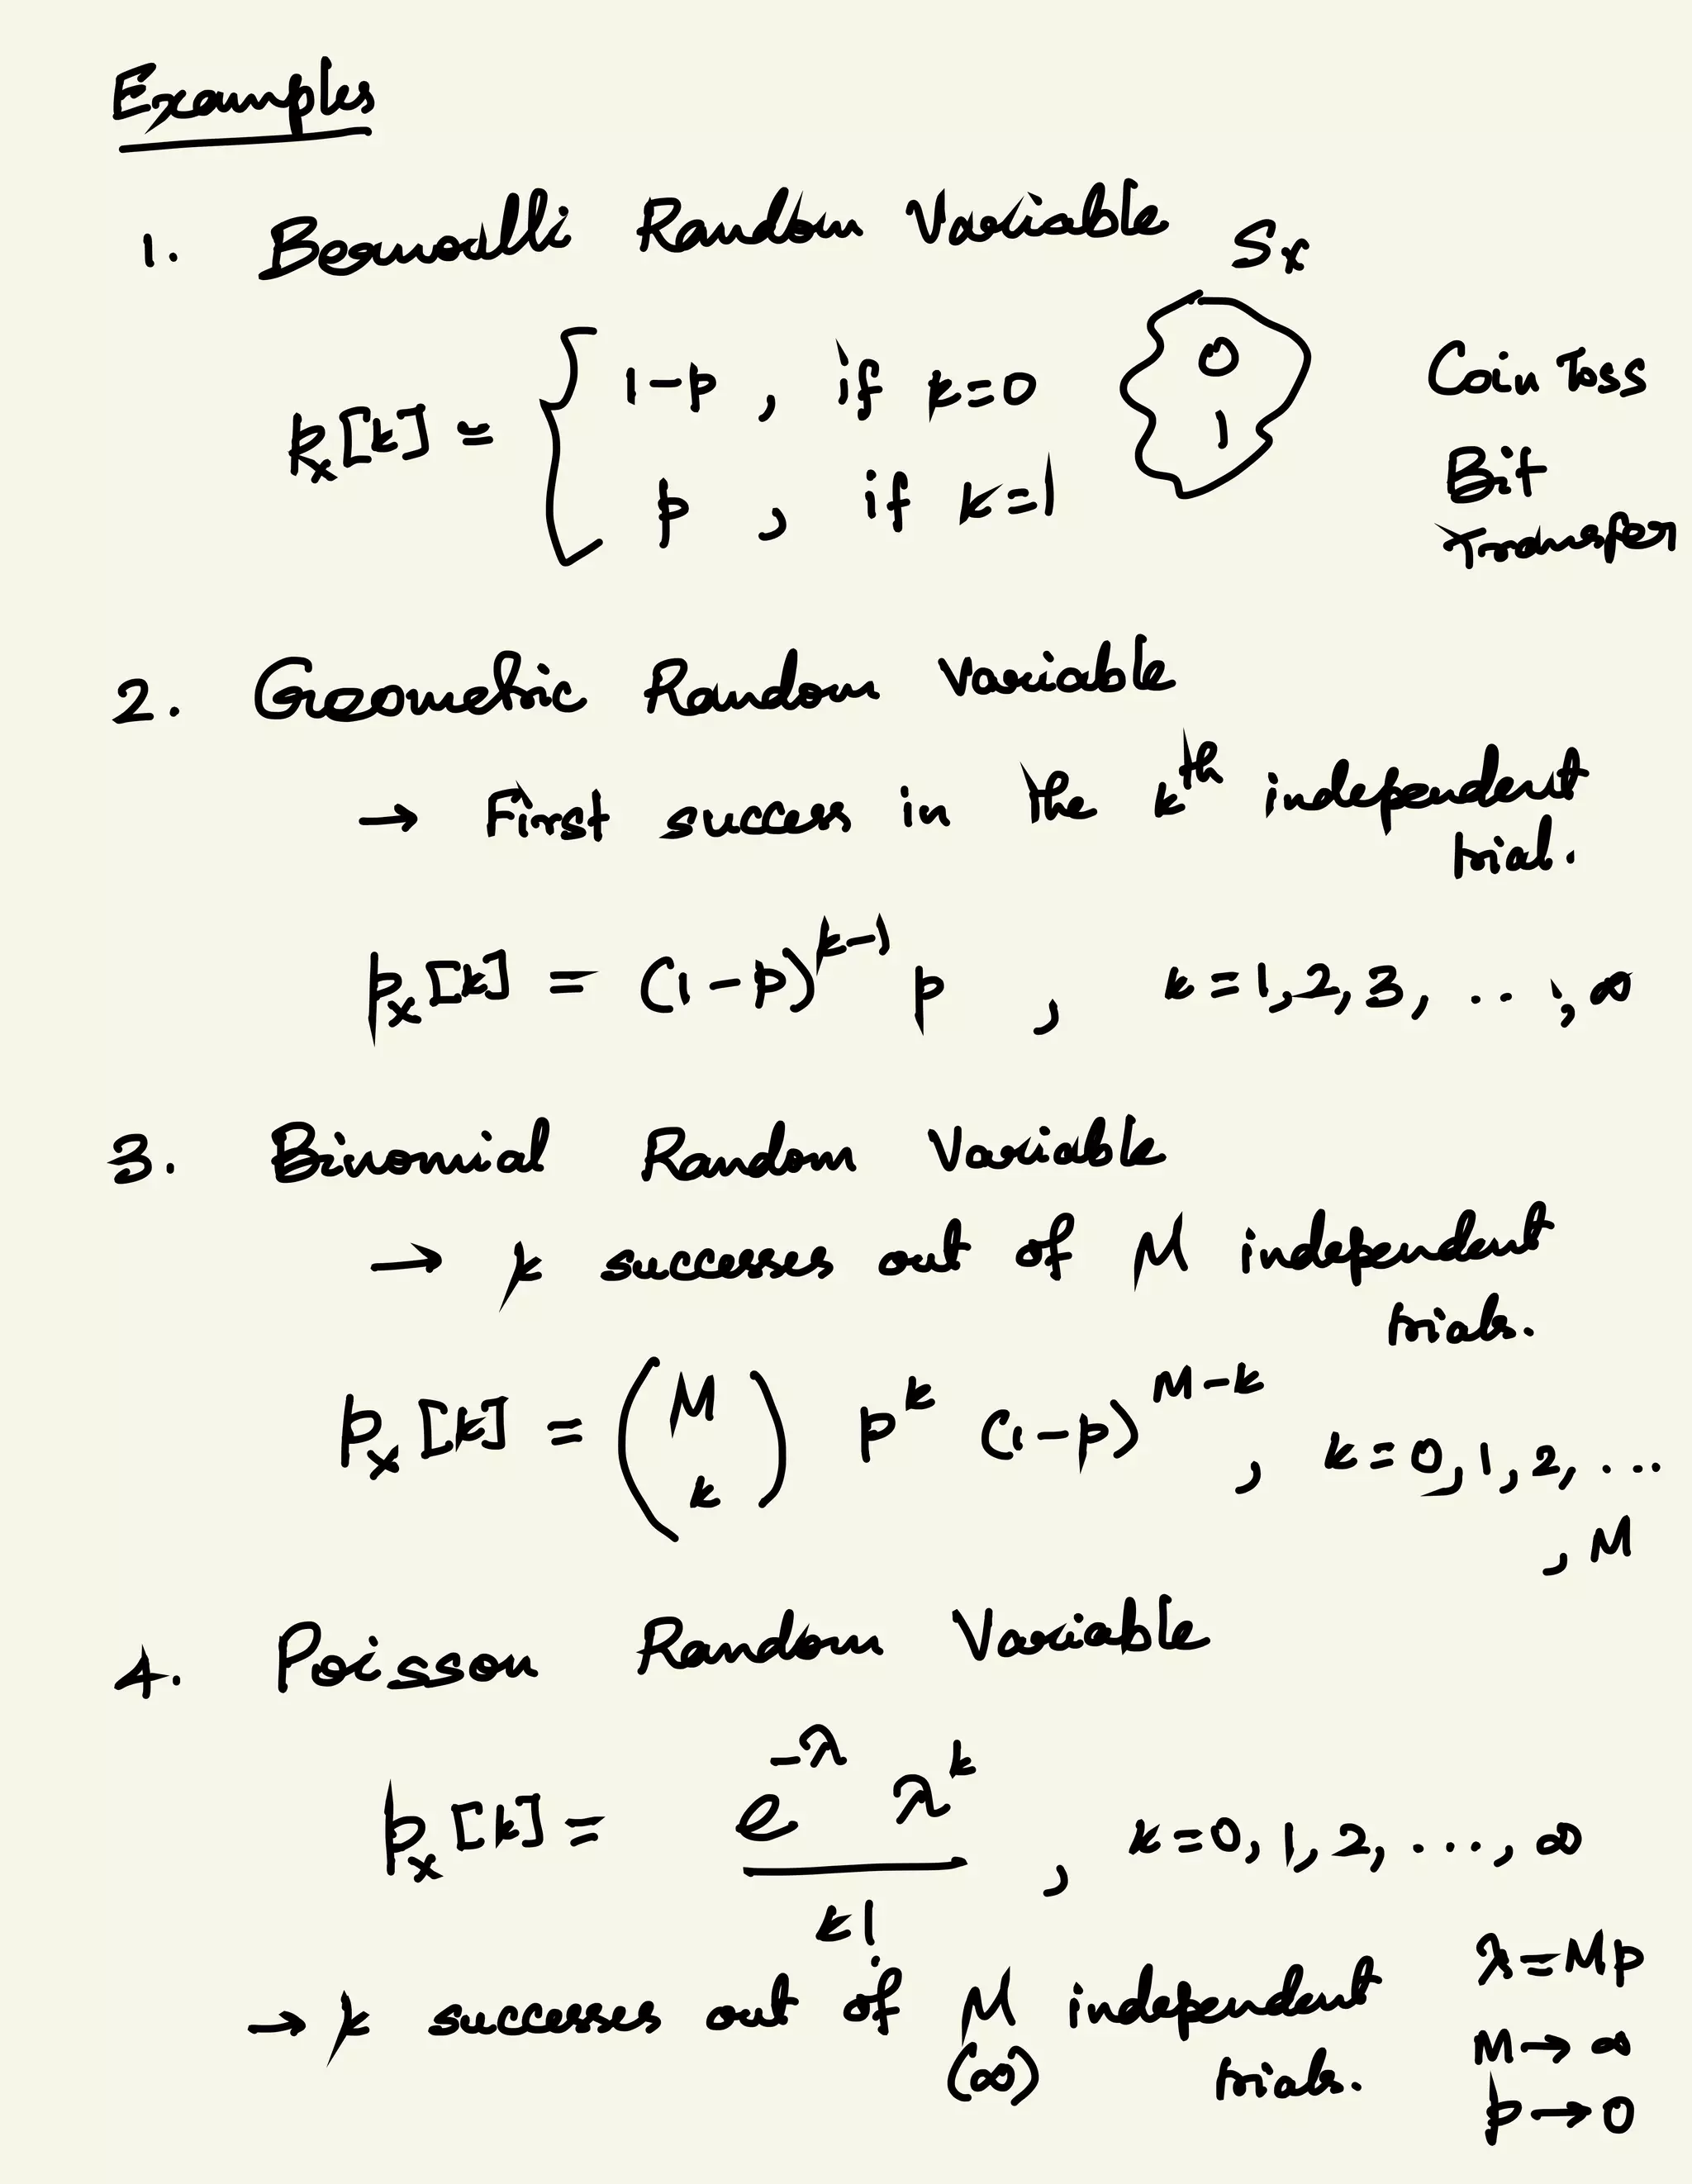 Examples
1. Bernoulli Random Variable S_x
p_x[k] = { 1-p , if k=0
p , if k=1
0
1
Coin Toss
Bit
Transfer
2. Geometric Random Variable
→ First success in the k^th independent
trial.
p_x[k] = (1-p)^{k-1} p , k=1,2,3, ..., ∞
3. Binomial Random Variable
→ k successes out of M independent
trials.
p_x[k] = (M k) p^k (1-p)^{M-k} , k=0,1,2, ...
, M
4. Poisson Random Variable
p_x[k] = e^{-λ} λ^k / k! , k=0,1,2, ..., ∞
→ k successes out of M independent
(∞) trials.
λ=Mp
M→∞
p→0